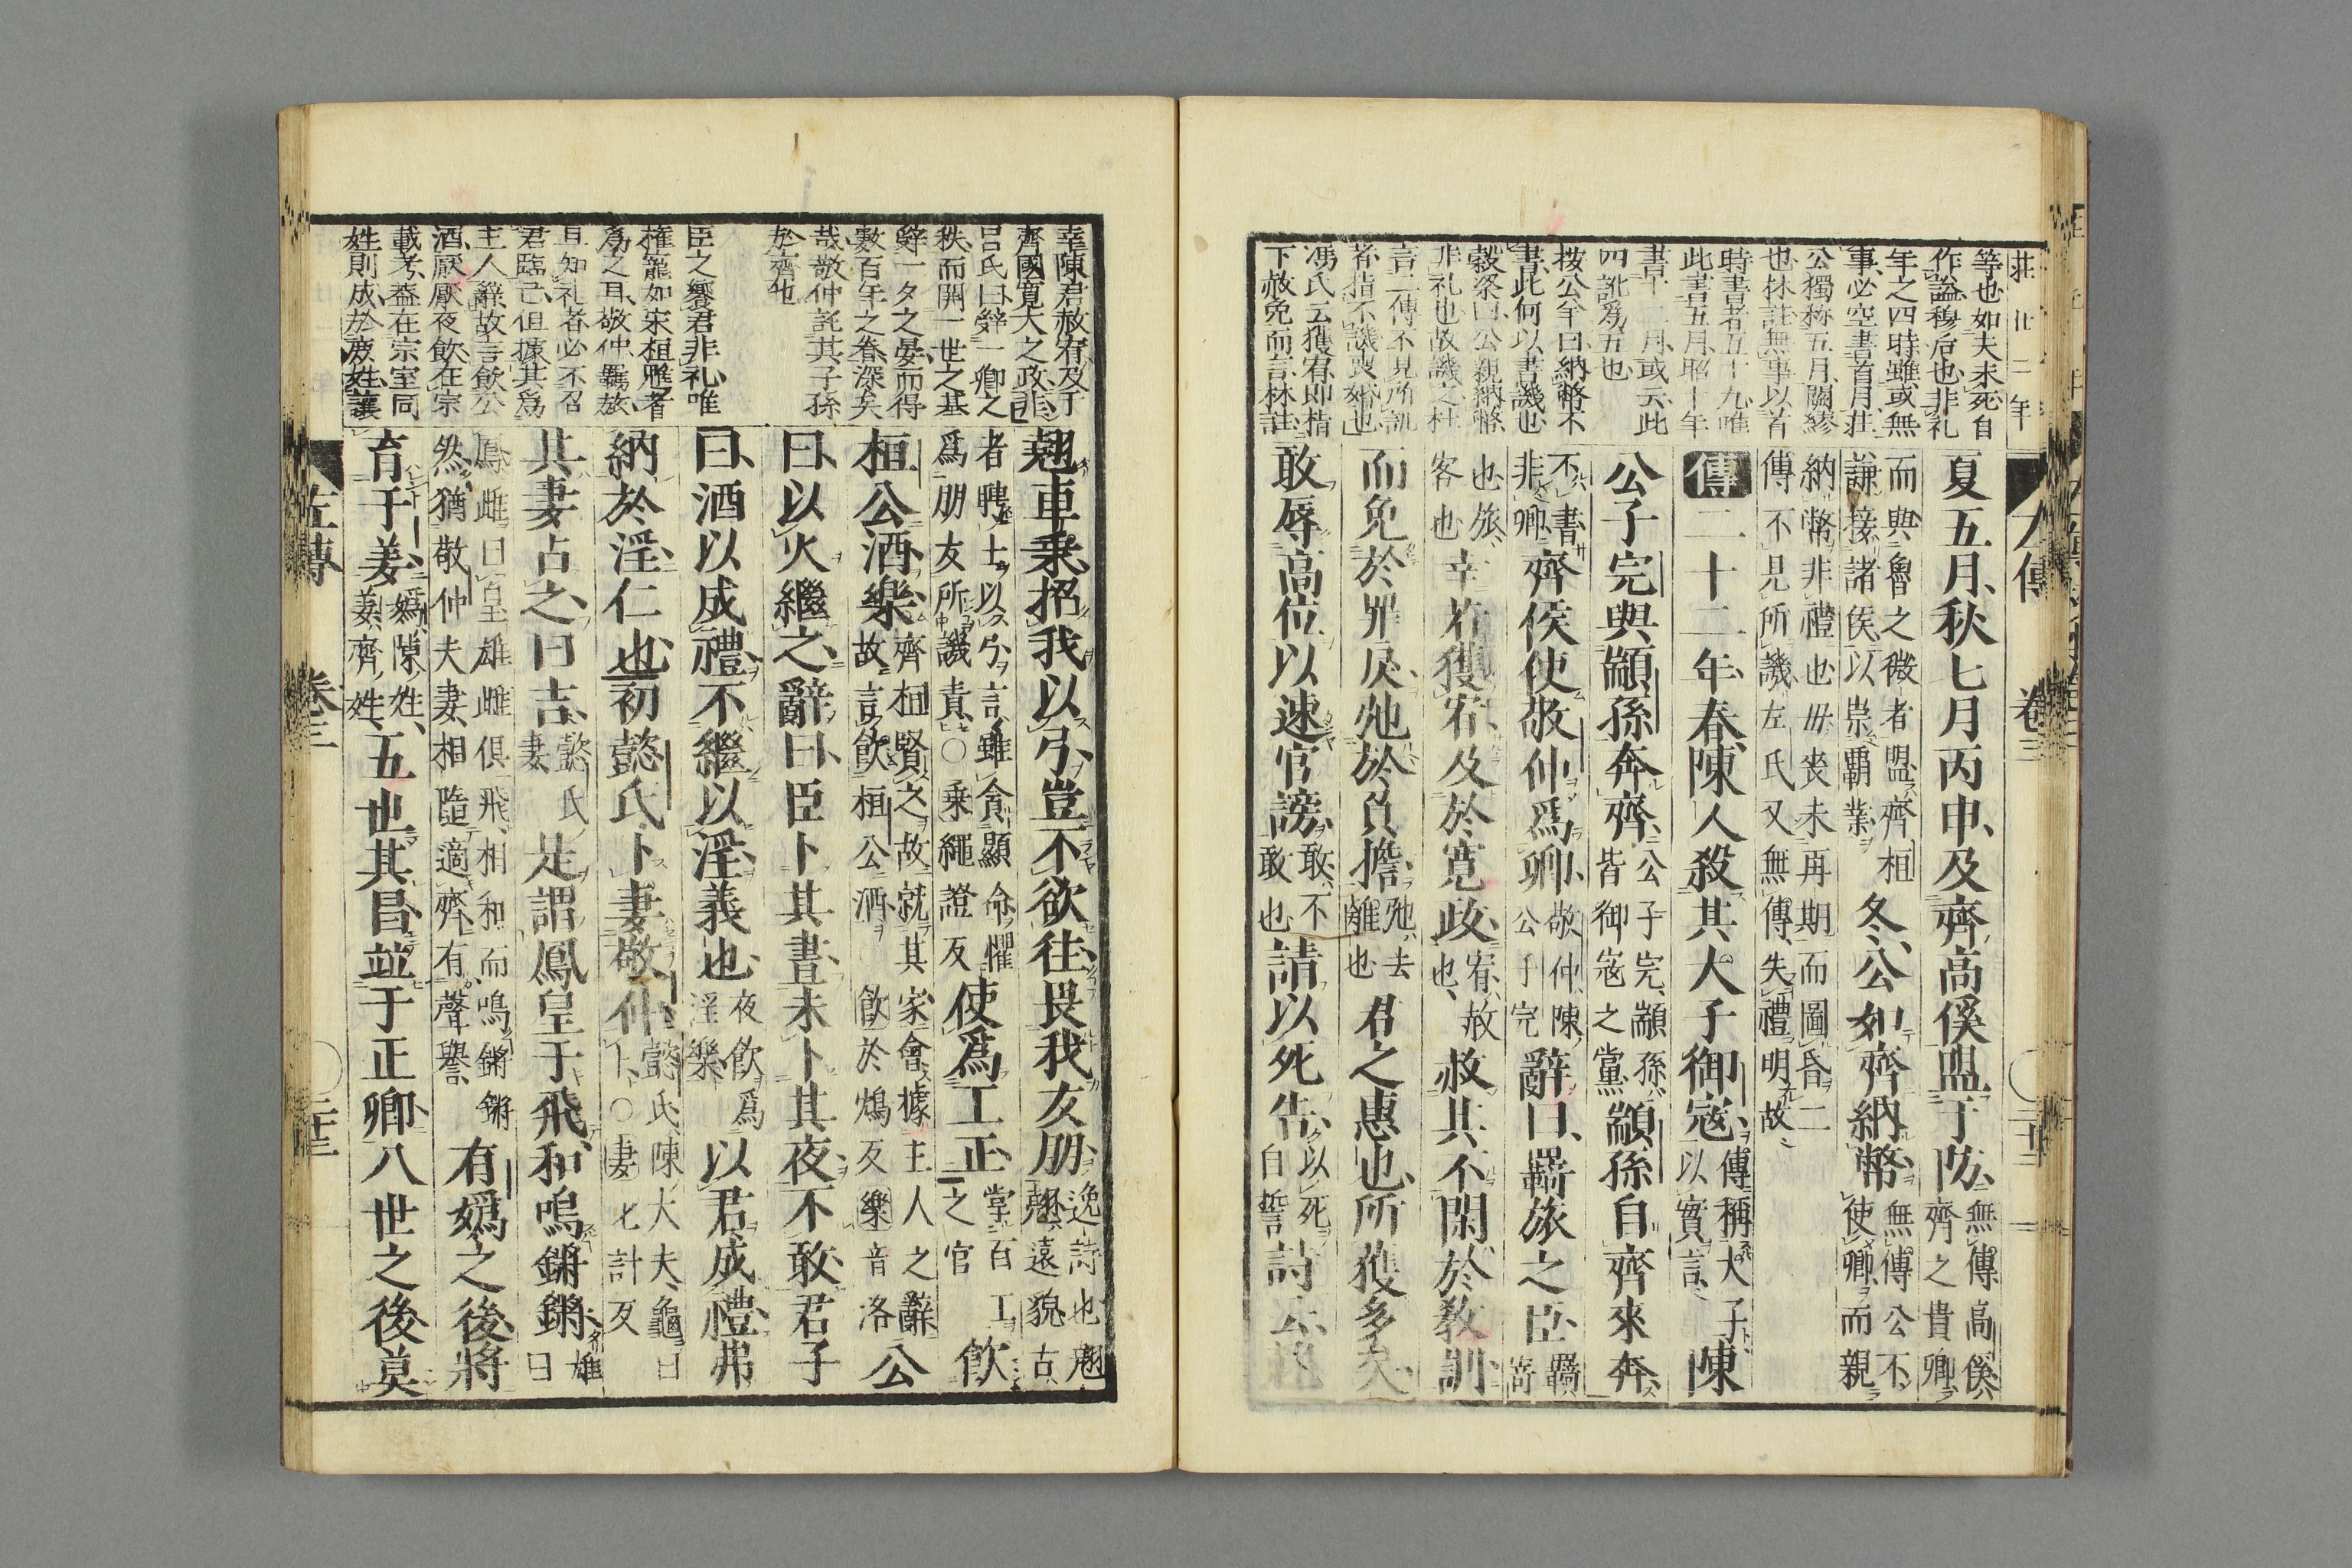 莊廿二年
等也如夫未死自
作謚穆后也非礼
年之四時雖或無
事必空書首月莊
公獨称五月闕繆
也林註無事以首
時書者五十九唯
此書五月昭十年
書十二月或云此
四訛爲五也
按公羊曰納幣不
書此何以書譏也
穀梁曰公親納幣
非礼也故譏之杜
言二傳不見所訊
者指不譏喪婚也
馮氏云獲宥即楷
下赦免而言林註
夏五月秋七月丙申及齊高傒盟于防
無傳高傒
齊之貴卿
而與魯之微者盟齊桓
謙接諸侯以崇覇業
冬公如齊納幣
無傳公不
使卿而親
納幣非禮也毋喪未再期而圖昏二
傳不見所譏左氏又無傳失禮明故
傳二十二年春陳人殺其大子御寇
傳稱大子
以實言
陳
公子完與顓孫奔齊
公子完顓孫
皆御寇之黨
顓孫自齊來奔
不書
非卿
齊侯使敬仲爲卿
敬仲陳
公子完
辭曰羇旅之臣
羇寄
也旅
客也
幸若獲宥及於寛政
宥赦
也
赦其不閑於教訓
而免於罪戻弛於負擔
弛去
離也
君之惠也所獲多矣
敢辱高位以速官謗
敢不
敢也
請以死告
以死
自誓
詩云翹
幸陳君赦宥及于
齊國寛大之政非
吕氏曰辤一卿之
秩而開一世之基
辤一夕之宴而得
數百年之眷深矣
哉敬仲託其子孫
於齊也
臣之饗君非礼唯
權寵如宋桓魋者
爲之耳敬仲羇旅
且知礼者必不召
君臨己但據其爲
主人辤故言飲公
酒厭厭夜飲在宗
載考葢在宗室同
姓則成於庻姓讓
翹車乗招我以弓豈不欲往畏我友朋
逸詩也翹
翹遠貌古
者聘士以弓言雖貪顯命懼
爲朋友所譏責○乗繩證反
使爲工正
掌百工
之官
飲
桓公酒樂
齊桓賢之故就其家會據主人之辭
故言飲桓公酒飲於鴆反樂音洛
公
曰以火繼之辭曰臣卜其晝未卜其夜不敢君子
曰酒以成禮不繼以淫義也
夜飲爲
淫樂
以君成禮弗
納於淫仁也初懿氏卜妻敬仲
懿氏陳大夫龜曰
卜○妻七計反
其妻占之曰吉
懿氏
妻
是謂鳳皇于飛和鳴鏘鏘
雄
曰
鳳雌曰皇雄雌俱飛相和而鳴鏘鏘
然猶敬仲夫妻相隨適齊有聲譽
有嬀之後將
育于姜
嬀陳姓
姜齊姓
五世其昌並于正卿八世之後莫
左傳 卷三 二十三